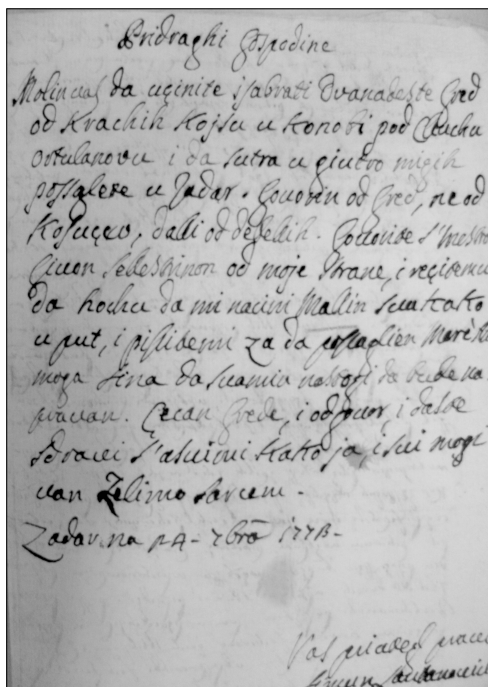 Pridraghi Gospodine
Molim vas da uçinite isabrati dvanadeste Gred
od Krachih Kojsu u Konobi pod Cluchu
ortulanovu i da sutra u giutro migih
possalete u Zadar. Govorin od Gred, ne od
, dali od debelih. Govorite s'
od moje strane, i reçitemu
da hochu da mi nacini Mallin svakako
u put, i pisitemi za da possaglien
moga sina da suamiu da bude na
pravan. Çecan Grede, i odgovor, i daste
sdravi s'asvimi Kako ja, i svi mogi
van Zelimo sarcem.
Zadar na 14 - 7brã 1773 -
Vas